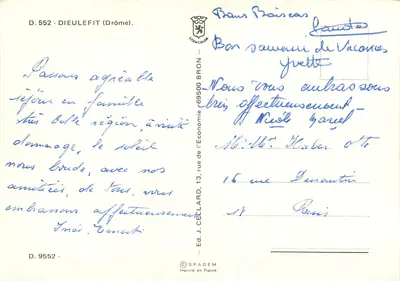 D. 552 - DIEULEFIT (Drôme).
Passons agréable
séjour en famille
très belle région, à visité
dommage, le soleil
nous boude, avec nos
amitiés, de tous. vous
embrassons affectueusement
D. 9552 -
Ed. J. CELLARD, 13, rue de l'Economie (69500 BRON)
Bons Baisers
Bon souvenir de Vacances
Yvette
Nous vous embrassons
bien affectueusement
Marcel
16 rue
18 Paris
© SRADEM
Imprimé en France